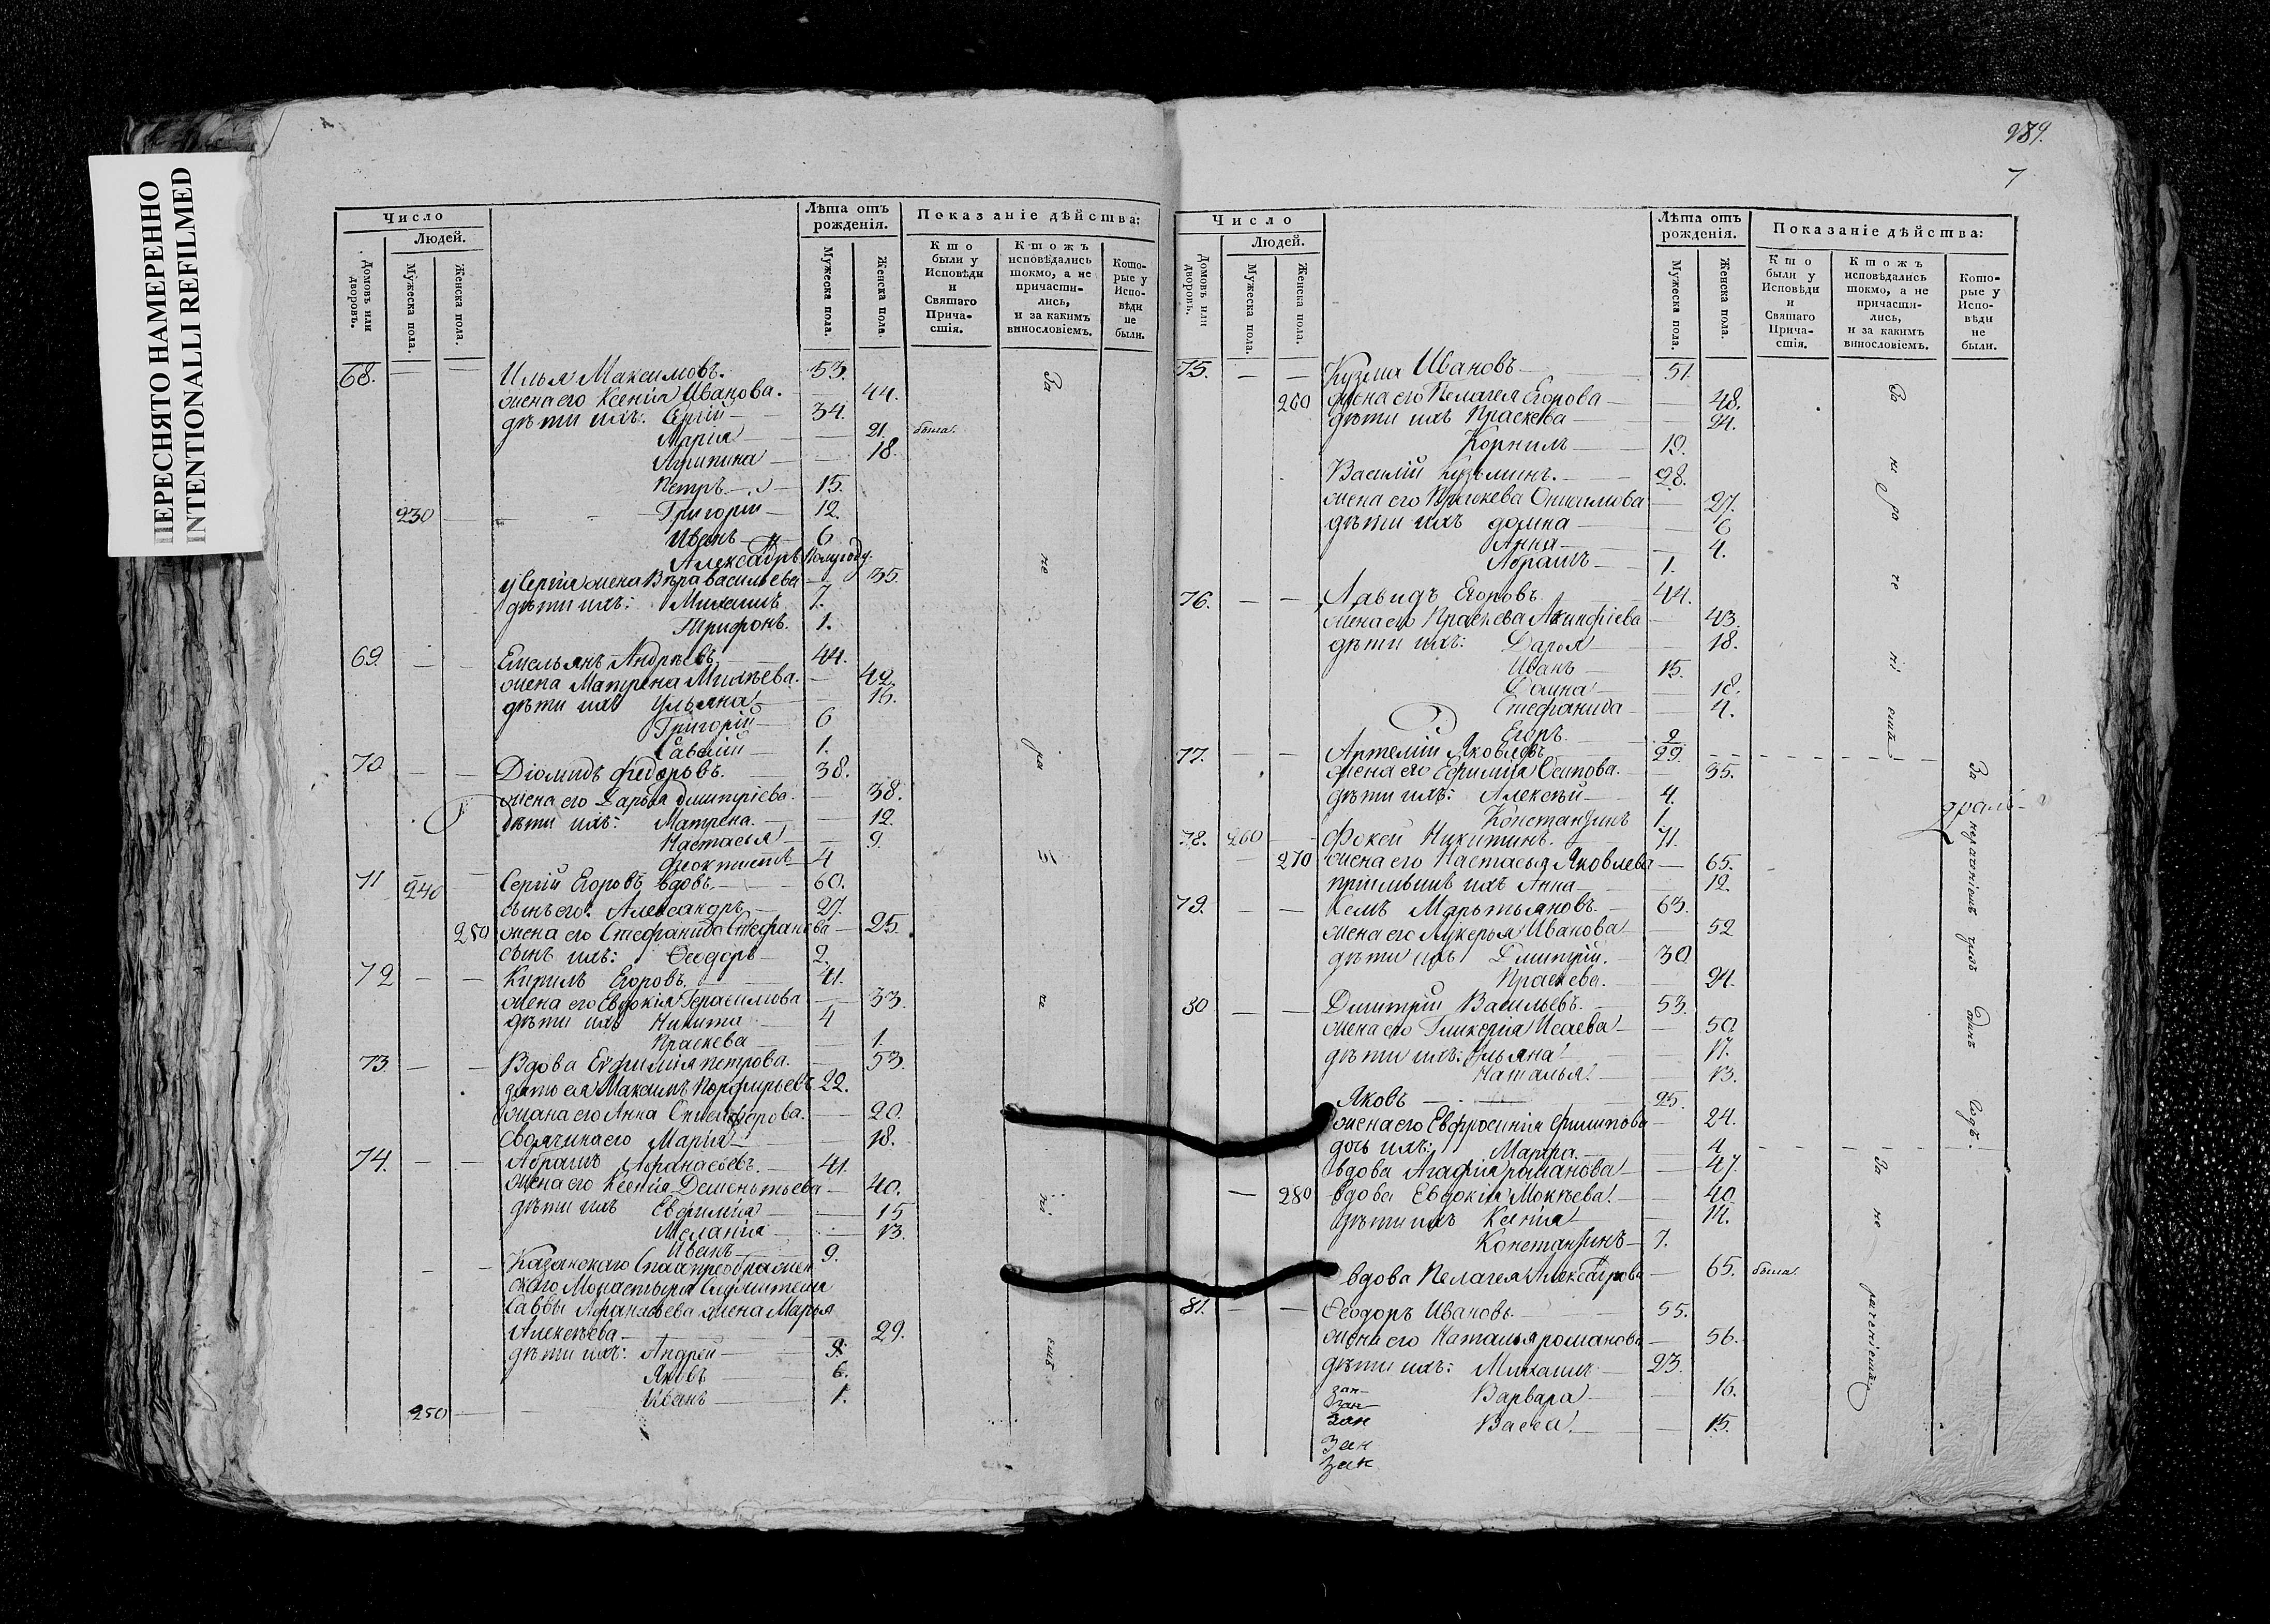 ПЕРЕСНЯТО НАМЕРЕННО
INTENTIONALLI REFILMED
Число
Людей.
Домовъ или дворовъ.
Мужеска пола.
Женска пола.
Лѣта отъ рожденія.
Мужеска пола.
Женска пола.
Показаніе дѣйства:
Кто были у Исповѣди и Святаго Прича-стія.
Ктожъ исповѣдались токмо, а не причасти-лись, и за какимъ винословіемъ.
Кото-рые у Испо-вѣди не были.
68. Илья Максимовъ. 53.
жена его Ксенія Иванова. 44.
дѣти ихъ: Сергій 34.
Марія 21. была.
Агрипина 18.
Петръ 15.
230 Григорій 12.
Иванъ 6
Александръ полугоду.
у Сергія жена Вѣра Васильева 35.
дѣти ихъ: Михаилъ 7.
Трифонъ. 1.
69. Емельянъ Андрѣевъ 44.
жена Матрена Михѣева. 42.
дѣти ихъ Ульяна 16.
Григорій 6
Савелій 1.
70 Діомидъ Федоровъ. 38.
жена его Дарья Дмитріева. 38.
дѣти ихъ: Матрена. 12.
Настасья 9.
Феоктистъ 4
71 240 Сергій Егоровъ вдовъ. 60.
сынъ его: Александръ 27.
250 жена его Стефанида Стефанова 25.
сынъ ихъ: Ѳеодоръ 2.
72 Кирилъ Егоровъ. 41.
жена его Евдокія Герасимова 33.
дѣти ихъ Никита 4
Праскева 1.
73 Вдова Евфимія Петрова. 53.
зять ея Максимъ Порфирьевъ 22.
жена его Анна 20.
своячина его Марія 18.
74. Абрамъ Афанасьевъ. 41.
жена его Ксенія Дементьева 40.
дѣти ихъ Евфимія 15
Меланія 13.
Иванъ 9.
Казанскаго Спаапреображен
скаго Монастыря Служителя
Саввы Афанасьева жена Марья
Алексѣева 29.
дѣти ихъ: Андрей 8.
Яковъ 6.
250 Иванъ 1.
289.
7
Число
Людей.
Домовъ или дворовъ.
Мужеска пола.
Женска пола.
Лѣта отъ рожденія.
Мужеска пола.
Женска пола.
Показаніе дѣйства:
Кто были у Исповѣди и Святаго Прича-стія.
Ктожъ исповѣдались токмо, а не причасти-лись, и за какимъ винословіемъ.
Кото-рые у Испо-вѣди не были.
75. Кузма Ивановъ 51.
260 жена его Пелагея Егорова 48.
дѣти ихъ Праскева 24.
Корнилъ 19.
Василій Кузьминъ. 28.
жена его Праскева 27.
дѣти ихъ домна 6
Анна 4.
Абрамъ 1.
76. Давидъ Егоровъ 44.
жена его Праскева Акинфіева 43.
дѣти ихъ: Дарья 18.
Иванъ 15.
Домна 10.
Стефанида 4.
Егоръ 2
77. Артемій Яковлевъ 29.
жена его Ефимія Осипова. 35.
дѣти ихъ: Алексѣй 4.
Константинъ 1.
78. 260 Фокей Никитинъ. 71.
270 жена его Настасья Яковлева 65.
пріимышъ ихъ Анна 12.
79. Мартьяновъ. 63.
жена его Лукерья Иванова 52
дѣти ихъ Дмитрій. 30
Праскева. 24.
80 Дмитрій Васильевъ. 53.
жена его Гликерія Исаева 50.
дѣти ихъ: Ульяна 17.
Наталья. 13.
Яковъ 25.
жена его Евфросинія Филипова 24.
дочь ихъ: Марфа. 4
вдова Агафія романова 47.
280 вдова Евдокія Мокѣева. 40.
дѣти ихъ Ксенія 14.
Константинъ 7.
вдова Пелагея Александрова 65. была.
81. Ѳеодоръ Ивановъ. 55.
жена его Наталья романова 56.
дѣти ихъ: Михаилъ 23.
Варвара 16.
Васса 15.
За нераченіемъ
За не раченіемъ.